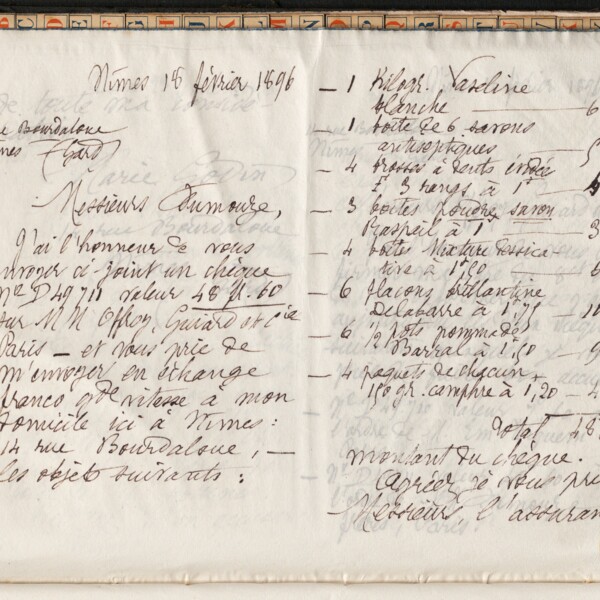 Nîmes 18 février 1896
Bourdaloue
(Gard)
Messieurs Dumouze,
J'ai l'honneur de vous
envoyer ci-joint un chèque
No D 49711 valeur 48 fr. 60
sur M M Offroy, Guiard et Cie
Paris — et vous prie de
m'envoyer en échange
franco gde vitesse à mon
domicile ici à Nîmes :
14 rue Bourdaloue, —
les objets suivants :
— 1 Kilogr. Vaseline
blanche — 6
— 1 boîte de 6 savons
antiseptiques — 5
— 4 brosses à dents
3 rangs à 1f — 4
— 3 boîtes poudre savon
Raspail à 1 — 3
— 4 boîtes Mixture dessica-
tive à 1,50 — 6
— 6 flacons brillantine
Delabarre à 1,75 — 10
— 6 1/2 pots pommade
Barral à 1,50 — 9
— 4 paquets de chacun
150 gr. camphre à 1,20 — 4
Total 48
montant du chèque.
Agréez, je vous prie
Messieurs, l'assuran